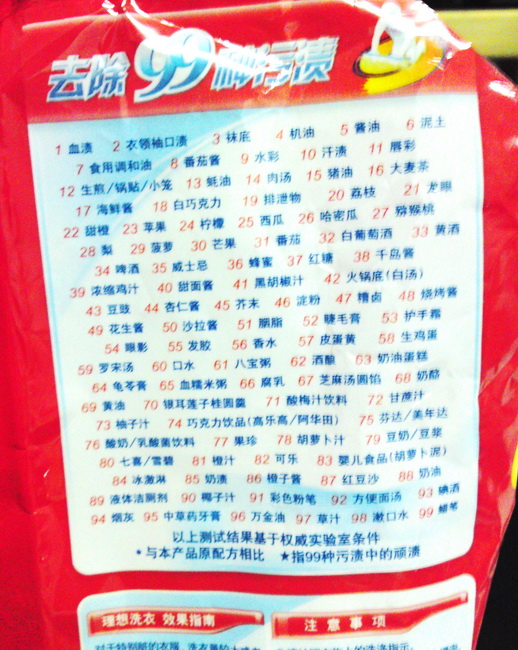 去除99种污渍
1 血渍 2 衣领袖口渍 3 袜底 4 机油 5 酱油 6 泥土
7 食用调和油 8 番茄酱 9 水彩 10 汗渍 11 唇彩
12 生煎/锅贴/小笼 13 蚝油 14 肉汤 15 猪油 16 大麦茶
17 海鲜酱 18 白巧克力 19 排泄物 20 荔枝 21 龙眼
22 甜橙 23 苹果 24 柠檬 25 西瓜 26 哈密瓜 27 猕猴桃
28 梨 29 菠萝 30 芒果 31 番茄 32 白葡萄酒 33 黄酒
34 啤酒 35 威士忌 36 蜂蜜 37 红糖 38 千岛酱
39 浓缩鸡汁 40 甜面酱 41 黑胡椒汁 42 火锅底(白汤)
43 豆豉 44 杏仁酱 45 芥末 46 淀粉 47 糟卤 48 烧烤酱
49 花生酱 50 沙拉酱 51 胭脂 52 睫毛膏 53 护手霜
54 眼影 55 发胶 56 香水 57 皮蛋黄 58 生鸡蛋
59 罗宋汤 60 口水 61 八宝粥 62 酒酿 63 奶油蛋糕
64 龟苓膏 65 血糯米粥 66 腐乳 67 芝麻汤圆馅 68 奶酪
69 黄油 70 银耳莲子桂圆羹 71 酸梅汁饮料 72 甘蔗汁
73 柚子汁 74 巧克力饮品(高乐高/阿华田) 75 芬达/美年达
76 酸奶/乳酸菌饮料 77 果珍 78 胡萝卜汁 79 豆奶/豆浆
80 七喜/雪碧 81 橙汁 82 可乐 83 婴儿食品(胡萝卜泥)
84 冰激淋 85 奶渍 86 橙子酱 87 红豆沙 88 奶油
89 液体洁厕剂 90 椰子汁 91 彩色粉笔 92 方便面汤 93 碘酒
94 烟灰 95 中草药牙膏 96 万金油 97 草汁 98 漱口水 99 蜡笔
以上测试结果基于权威实验室条件
*与本产品原配方相比 ★指99种污渍中的顽渍
理想洗衣 效果指南 注意事项